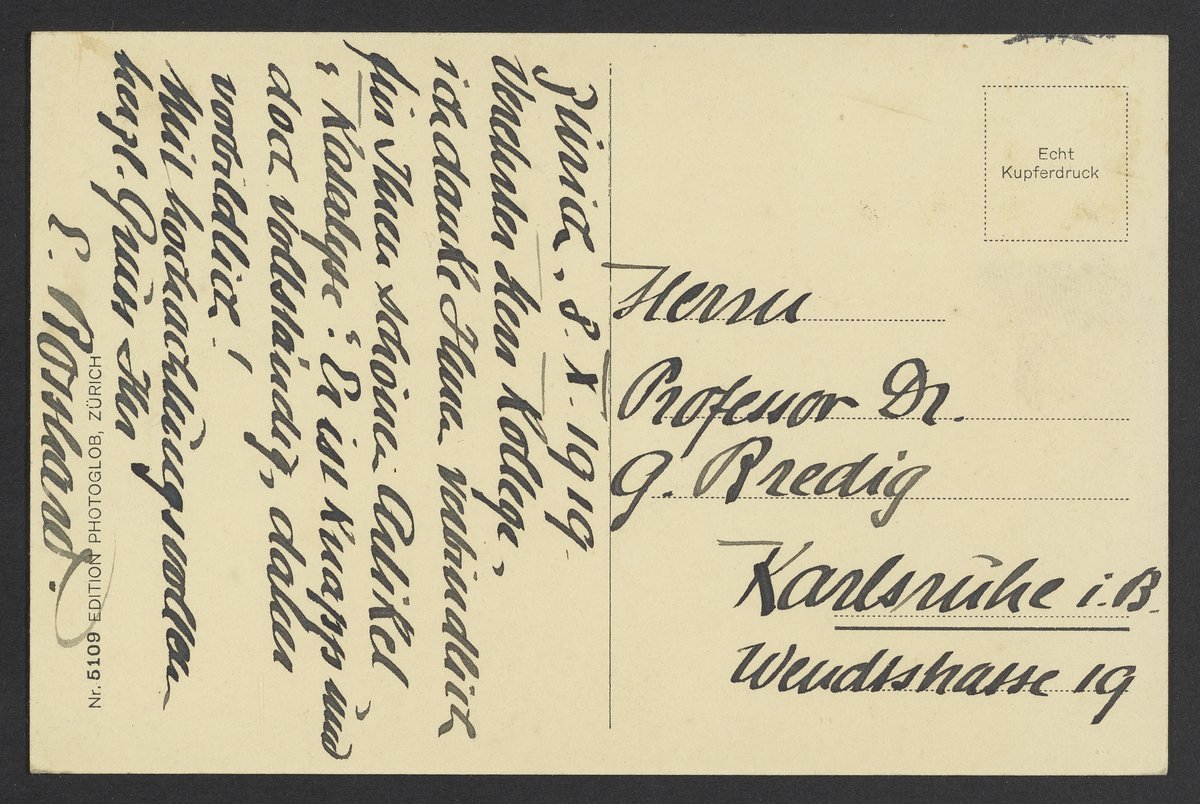 Zürich, 8. X. 1919.
Verehrter Herr Kollege,
ich danke Ihnen verbindlich
für Ihren schönen Artikel
"Katalyse". Er ist knapp und
doch vollständig, daher
vorbildlich!
Mit hochachtungsvollen
herzl. Gruss Ihr
E. Bosshard.
Nr. 5109 EDITION PHOTOGLOB, ZÜRICH
Echt
Kupferdruck
Herrn
Professor Dr.
G. Bredig
Karlsruhe i. B.
Wendtstrasse 19